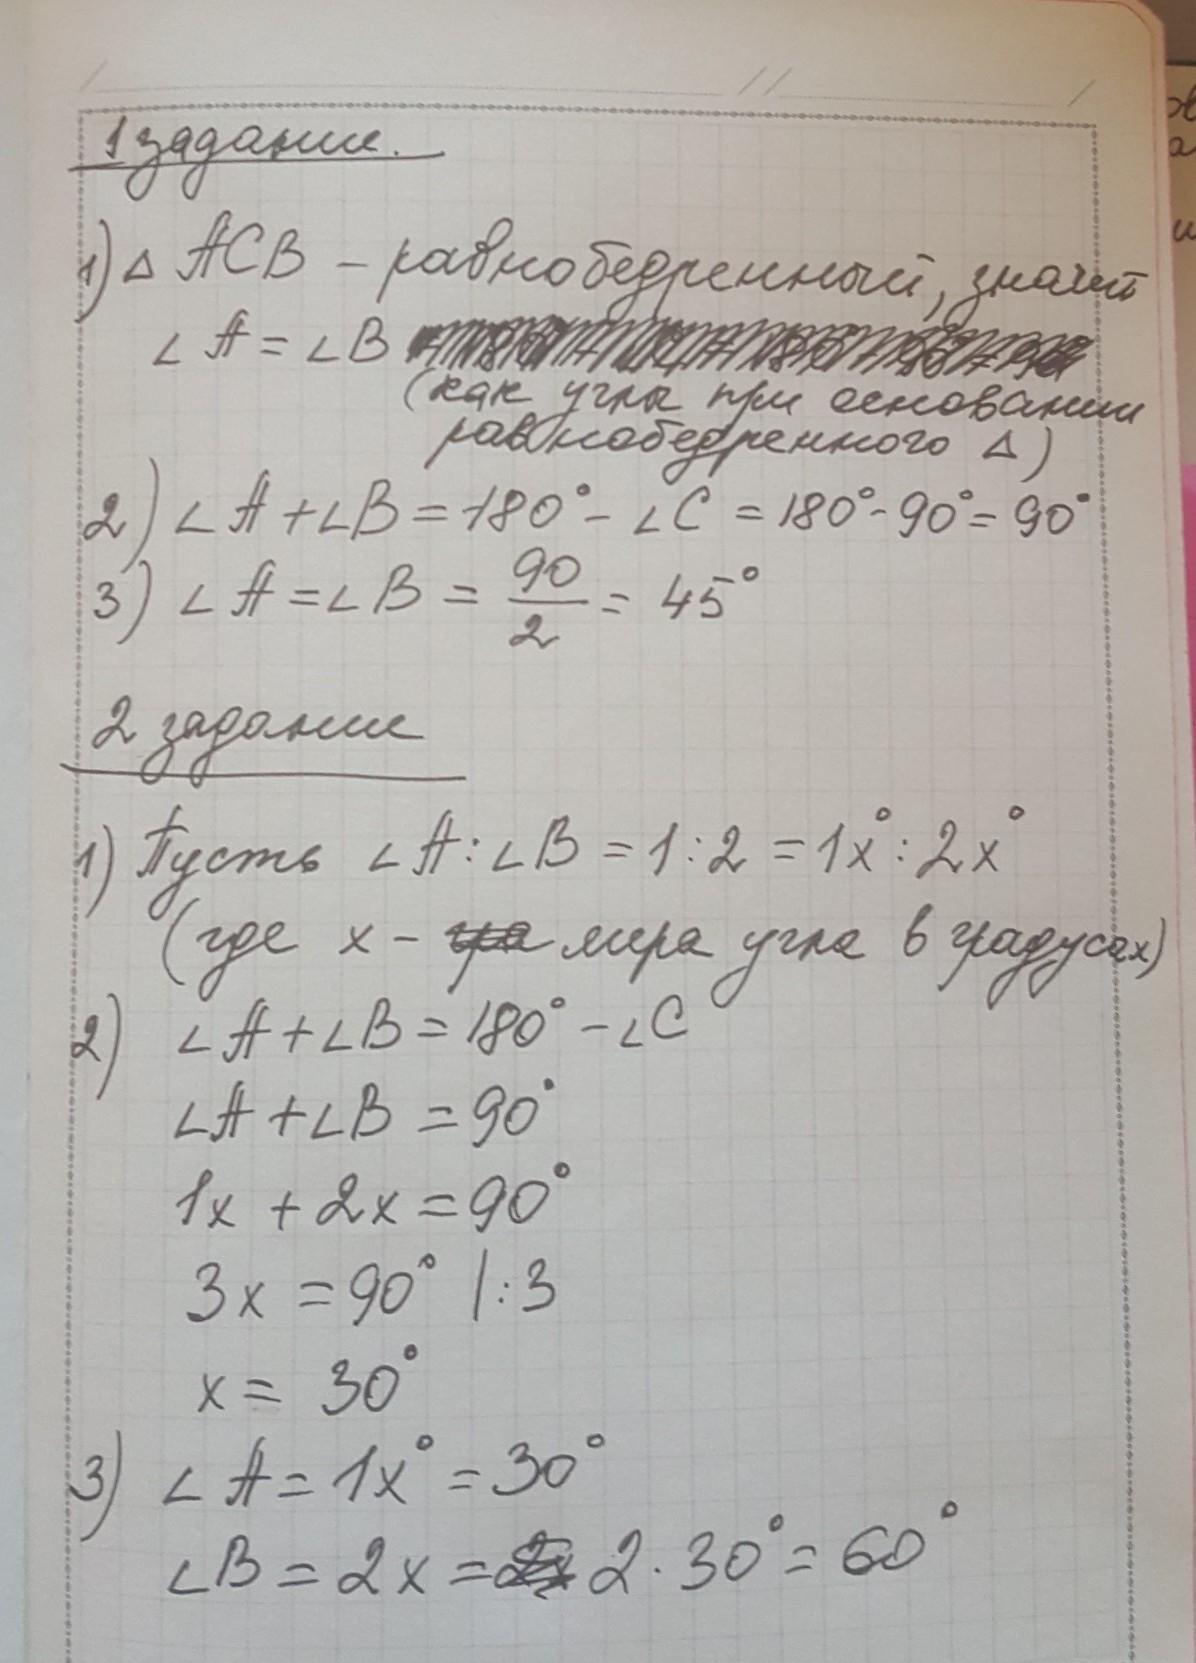 1 задание.
1) △ ACB – равнобедренный, значит
∠A = ∠B
(как углы при основании
равнобедренного △)
2) ∠A + ∠B = 180° - ∠C = 180° - 90° = 90°
3) ∠A = ∠B = 90/2 = 45°
2 задание
1) Пусть ∠A : ∠B = 1 : 2 = 1x° : 2x°
(где x – мера угла в градусах)
2) ∠A + ∠B = 180° - ∠C
∠A + ∠B = 90°
1x + 2x = 90°
3x = 90° |:3
x = 30°
3) ∠A = 1x° = 30°
∠B = 2x = 2 · 30° = 60°